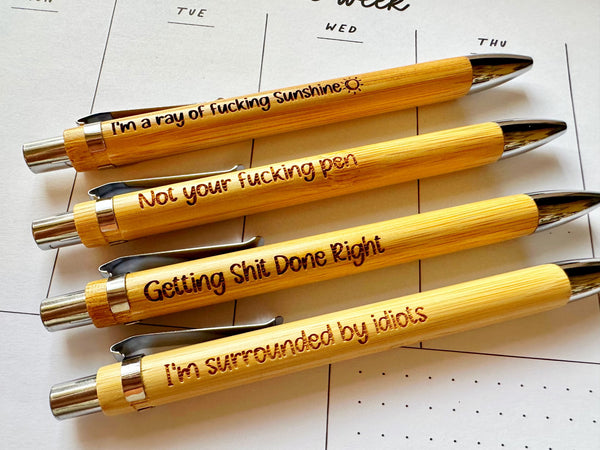 week
TUE
WED
THU
I'm a ray of fucking Sunshine
Not your fucking pen
Getting Shit Done Right
I'm surrounded by idiots